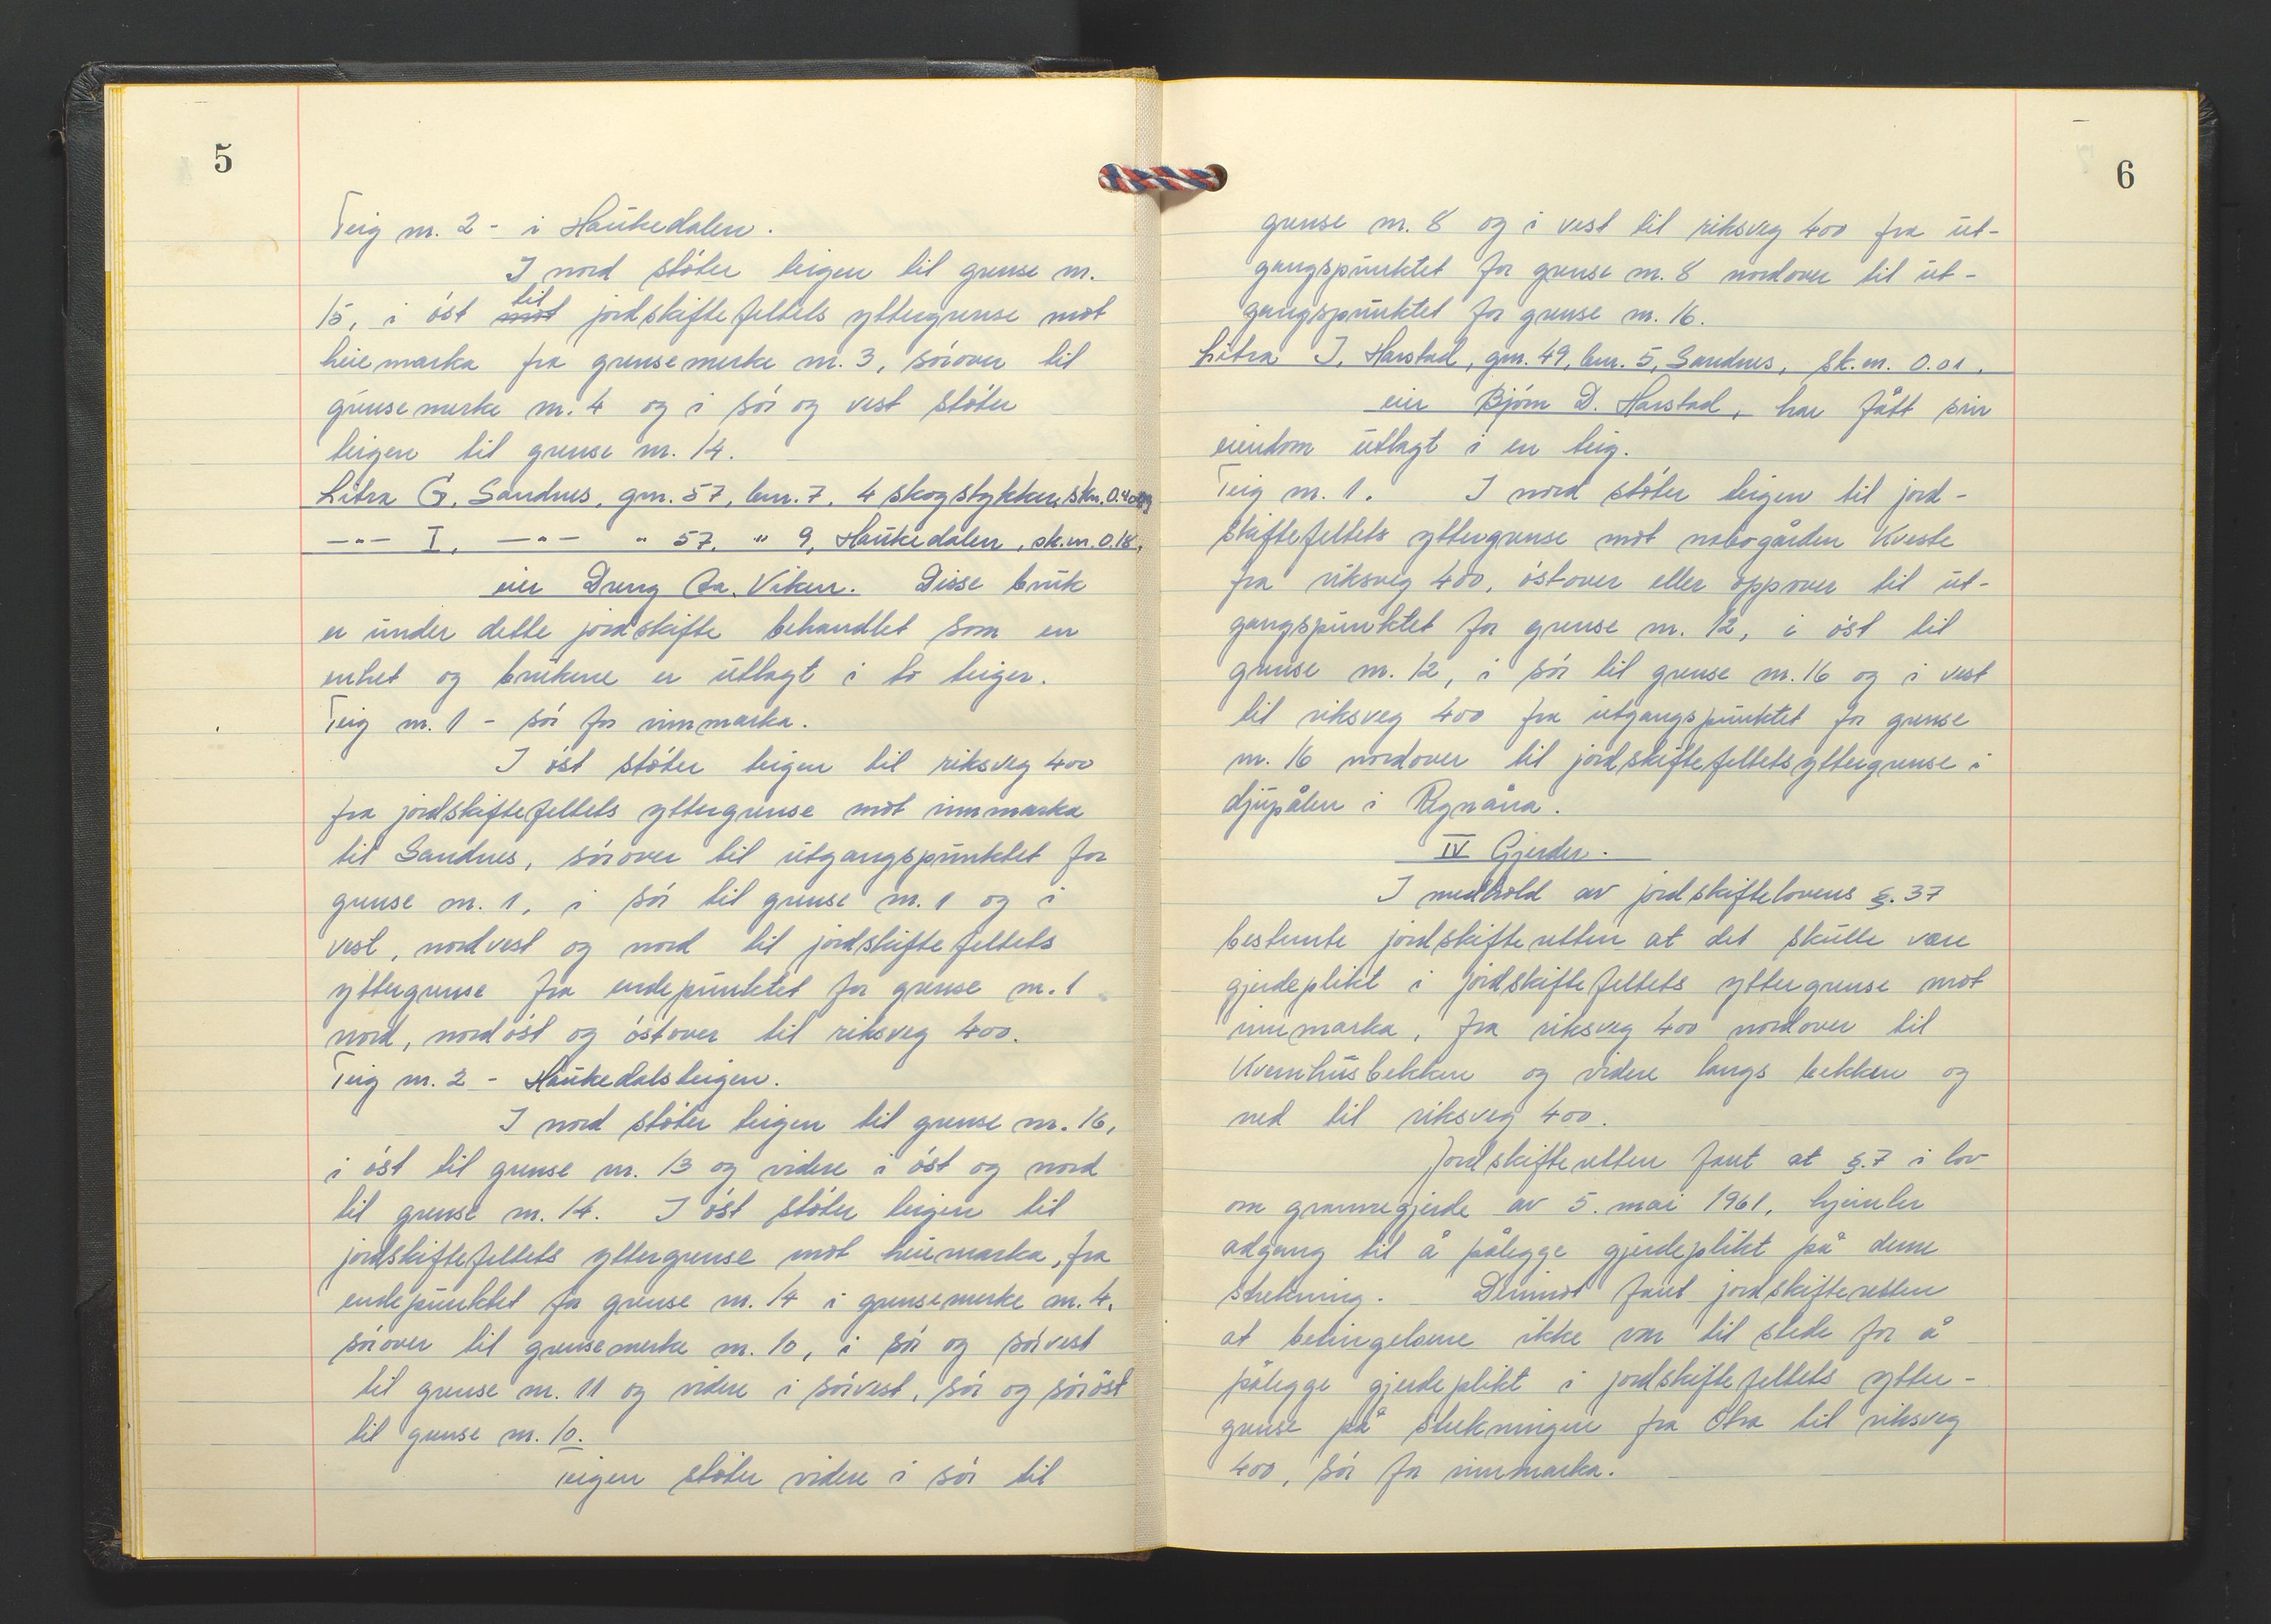 5
Teig nr. 2 - i Haukedalen.
I nord støter teigen til grense nr.
15, i øst til mot jordskiftefeltets yttergrense mot
heiemarka fra grensemerke nr. 3, sørover til
grensemerke nr. 4 og i sør og vest støter
teigen til grense nr. 14.
Litra G. Sandnes, gnr. 57, bnr. 7, 4 skogstykker, skm. 0.40 og
—"— I, —"— " 57. " 9, Haukedalen, sk.m. 0.18,
eier Dreng Aa. Viken. Disse bruk
er under dette jordskifte behandlet som en
enhet og brukene er utlagt i to teiger.
Teig nr. 1 - sør for innmarka.
I øst støter teigen til riksveg 400
fra jordskiftefeltets yttergrense mot innmarka
til Sandnes, sørover til utgangspunktet for
grense nr. 1, i sør til grense nr. 1 og i
vest, nordvest og nord til jordskiftefeltets
yttergrense fra endepunktet for grense nr. 1
nord, nordøst og østover til riksveg 400.
Teig nr. 2 - Haukedalsteigen.
I nord støter teigen til grense nr. 16,
i øst til grense nr. 13 og videre i øst og nord
til grense nr. 14. I øst støter teigen til
jordskiftefeltets yttergrense mot heiemarka, fra
endepunktet for grense nr. 14 i grensemerke nr. 4,
sørover til grensemerke nr. 10, i sør og sørvest
til grense nr. 11 og videre i sørvest, sør og sørøst
til grense nr. 10.
Teigen støter videre i sør til
6
grense nr. 8 og i vest til riksveg 400 fra ut-
gangspunktet for grense nr. 8 nordover til ut-
gangspunktet for grense nr. 16.
Litra J, Harstad, gnr. 49, bnr. 5, Sandnes, sk.m. 0.01,
eier Bjørn D. Harstad, har fått sin
eiendom utlagt i en teig.
Teig nr. 1. I nord støter teigen til jord-
skiftefeltets yttergrense mot nabogården Kveste
fra riksveg 400, østover eller oppover til ut-
gangspunktet for grense nr. 12, i øst til
grense nr. 12, i sør til grense nr. 16 og i vest
til riksveg 400 fra utgangspunktet for grense
nr. 16 nordover til jordskiftefeltets yttergrense i
djupålen i Regnåna.
IV Gjerder.
I medhold av jordskiftelovens §. 37
bestemte jordskifteretten at det skulle være
gjerdeplikt i jordskiftefeltets yttergrense mot
innmarka, fra riksveg 400 nordover til
Kvernhusbekken og videre langs bekken og
ned til riksveg 400.
Jordskifteretten fant at §. 7 i lov
om grannegjerde av 5. mai 1961, hjemler
adgang til å pålegge gjerdeplikt på denne
strekning. Derimot fant jordskifteretten
at betingelsene ikke var til stede for å
pålegge gjerdeplikt i jordskiftefeltets ytter-
grense på strekningen fra Otra til riksveg
400, sør for innmarka.